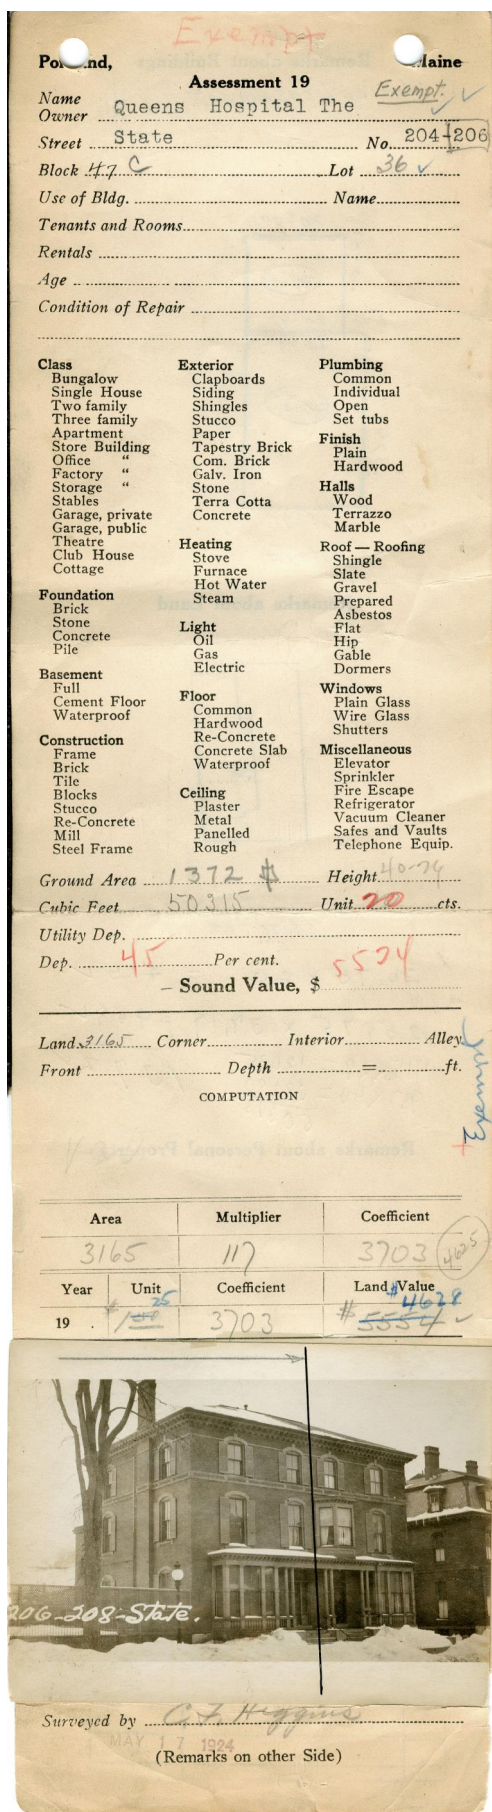 Exempt
Portland, Maine
Assessment 19
Exempt.
Name
Owner Queens Hospital The
Street State No. 204-206
Block 47 C Lot 36
Use of Bldg. Name
Tenants and Rooms
Rentals
Age
Condition of Repair
Class
Bungalow
Single House
Two family
Three family
Apartment
Store Building
Office "
Factory "
Storage "
Stables
Garage, private
Garage, public
Theatre
Club House
Cottage
Foundation
Brick
Stone
Concrete
Pile
Basement
Full
Cement Floor
Waterproof
Construction
Frame
Brick
Tile
Blocks
Stucco
Re-Concrete
Mill
Steel Frame
Exterior
Clapboards
Siding
Shingles
Stucco
Paper
Tapestry Brick
Com. Brick
Galv. Iron
Stone
Terra Cotta
Concrete
Heating
Stove
Furnace
Hot Water
Steam
Light
Oil
Gas
Electric
Floor
Common
Hardwood
Re-Concrete
Concrete Slab
Waterproof
Ceiling
Plaster
Metal
Panelled
Rough
Plumbing
Common
Individual
Open
Set tubs
Finish
Plain
Hardwood
Halls
Wood
Terrazzo
Marble
Roof — Roofing
Shingle
Slate
Gravel
Prepared
Asbestos
Flat
Hip
Gable
Dormers
Windows
Plain Glass
Wire Glass
Shutters
Miscellaneous
Elevator
Sprinkler
Fire Escape
Refrigerator
Vacuum Cleaner
Safes and Vaults
Telephone Equip.
Ground Area 1372 Height
Cubic Feet 50315 Unit 20 cts.
Utility Dep.
Dep. 45 Per cent.
– Sound Value, $ 5534
Land 3165 Corner Interior Alley
Front Depth = ft.
Exempt
COMPUTATION
Area Multiplier Coefficient
3165 117 3703 4625
Year Unit Coefficient Land Value
$ 4628
19 $ 1 25 3703 $ 5554
206-208-State.
Surveyed by C. F. Higgins
MAY 17 1924
(Remarks on other Side)